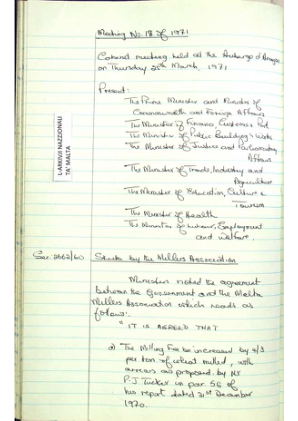 Meeting No. 18 of 1971
Cabinet meeting held at the Auberge d'Aragon
on Thursday 25th March, 1971
Present:
The Prime Minister and Minister of
Commonwealth and Foreign Affairs
The Minister of Finance Customs & Port
The Minister of Public Building & Works
The Minister of Justice and Parliamentary
Affairs
The Minister of Trade, Industry and
Agriculture
The Minister of Education, Culture &
Tourism
The Minister of Health
The Minister of Labour, Employment
and Welfare.
L-ARKIVJI NAZZJONALI
TA' MALTA
Sec. 2662/60
Strike by the Millers Association
Ministers noted the agreement
between the Government and the Malta
Millers Association which reads as
follows:
"IT IS AGREED THAT
a) The Milling Fee be increased by 4/3
per ton of wheat milled, with
arrears as proposed by Mr
P.J. Tucker in par 56 of
his report dated 31st December
1970.